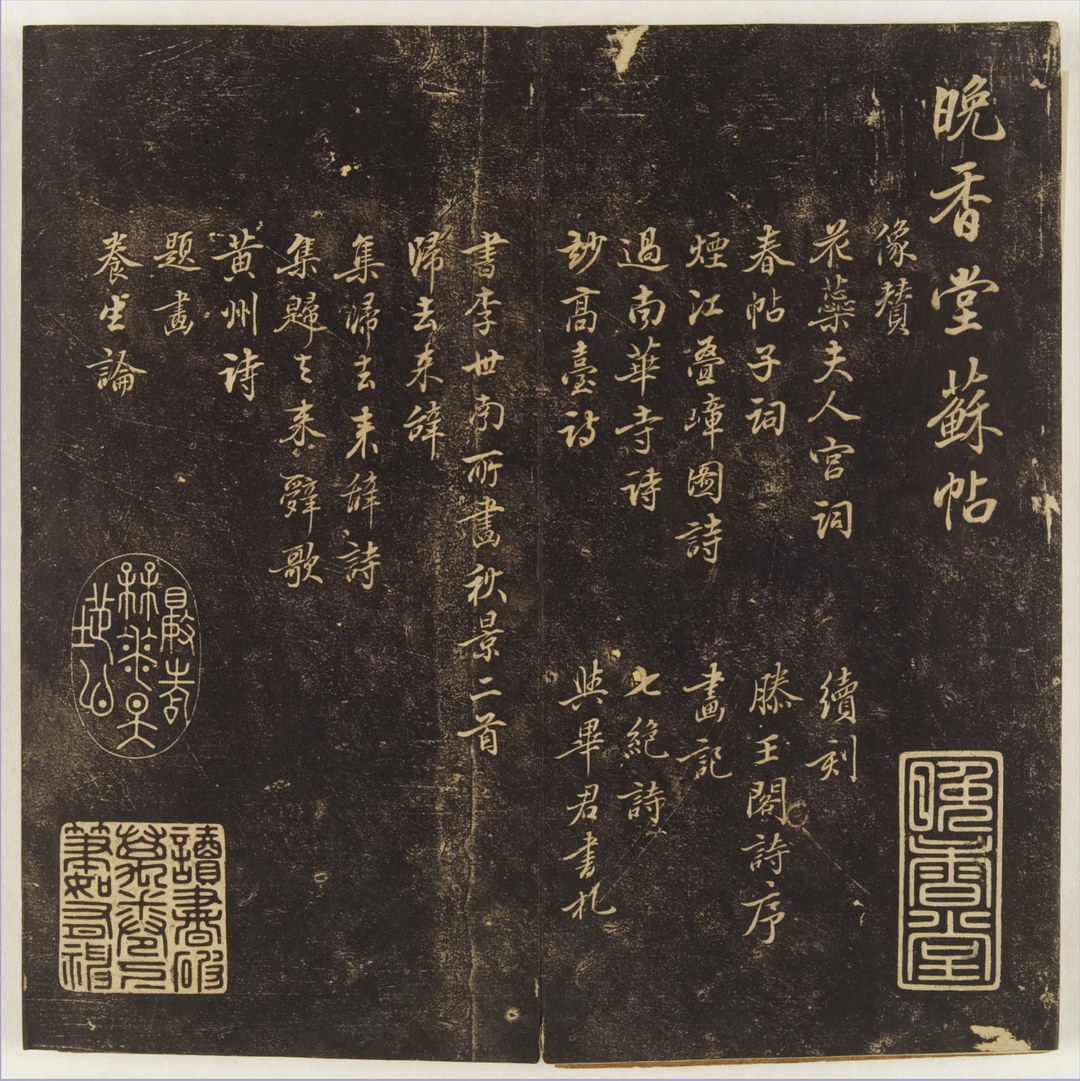 晚香堂蘇帖
像贊
花蘂夫人宮詞
續刻
春帖子詞
滕王閣詩序
煙江疊嶂圖詩
畫記
過南華寺詩
七絕詩
妙高臺詩
與畢君書札
書李世南所畫秋景二首
歸去来辞
集歸去来辞詩
集歸去来辭歌
黃州詩
題畫
養生論
晚香堂